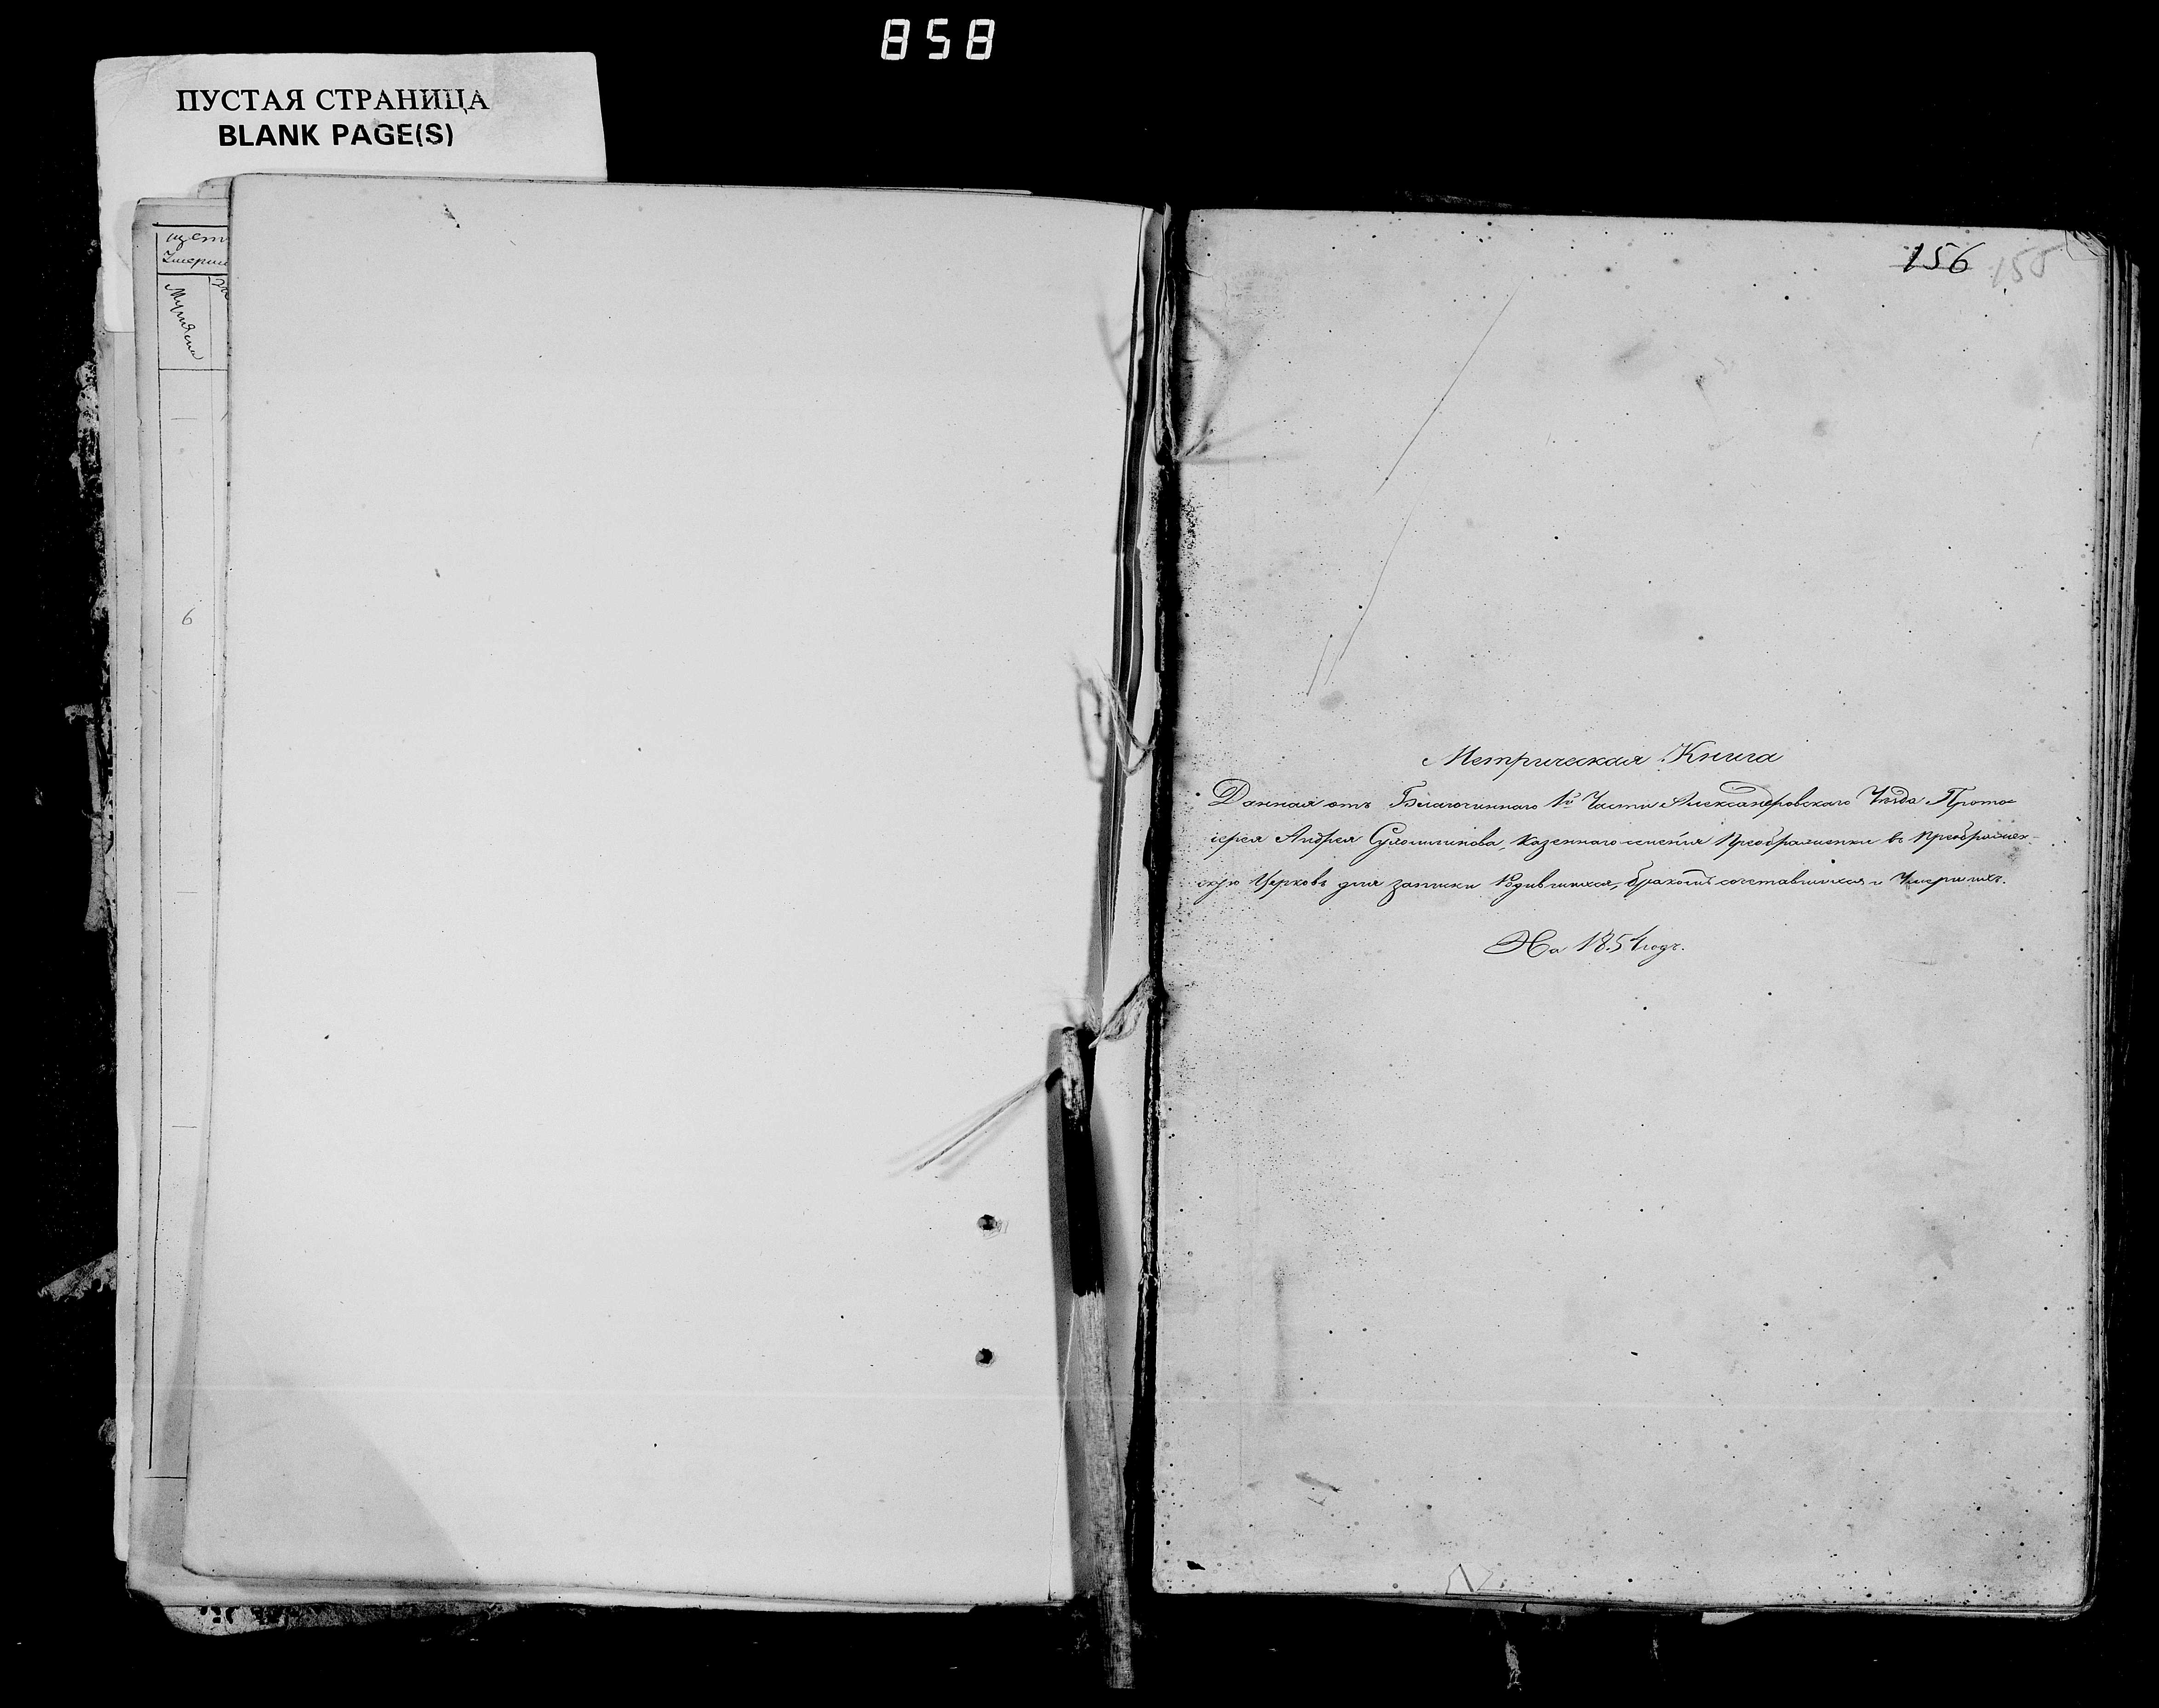 858
ПУСТАЯ СТРАНИЦА
BLANK PAGE(S)
6
156 155
Метрическая Книга
Данная отъ Благочиннаго 1й Части Александровскаго Уѣзда Прото-
іерея Андрея казеннаго селенія Преображенки въ Преображен-
скую Церковь для записки Родившихся, бракомъ сочетавшихся и Умершихъ.
На 1854 годъ.